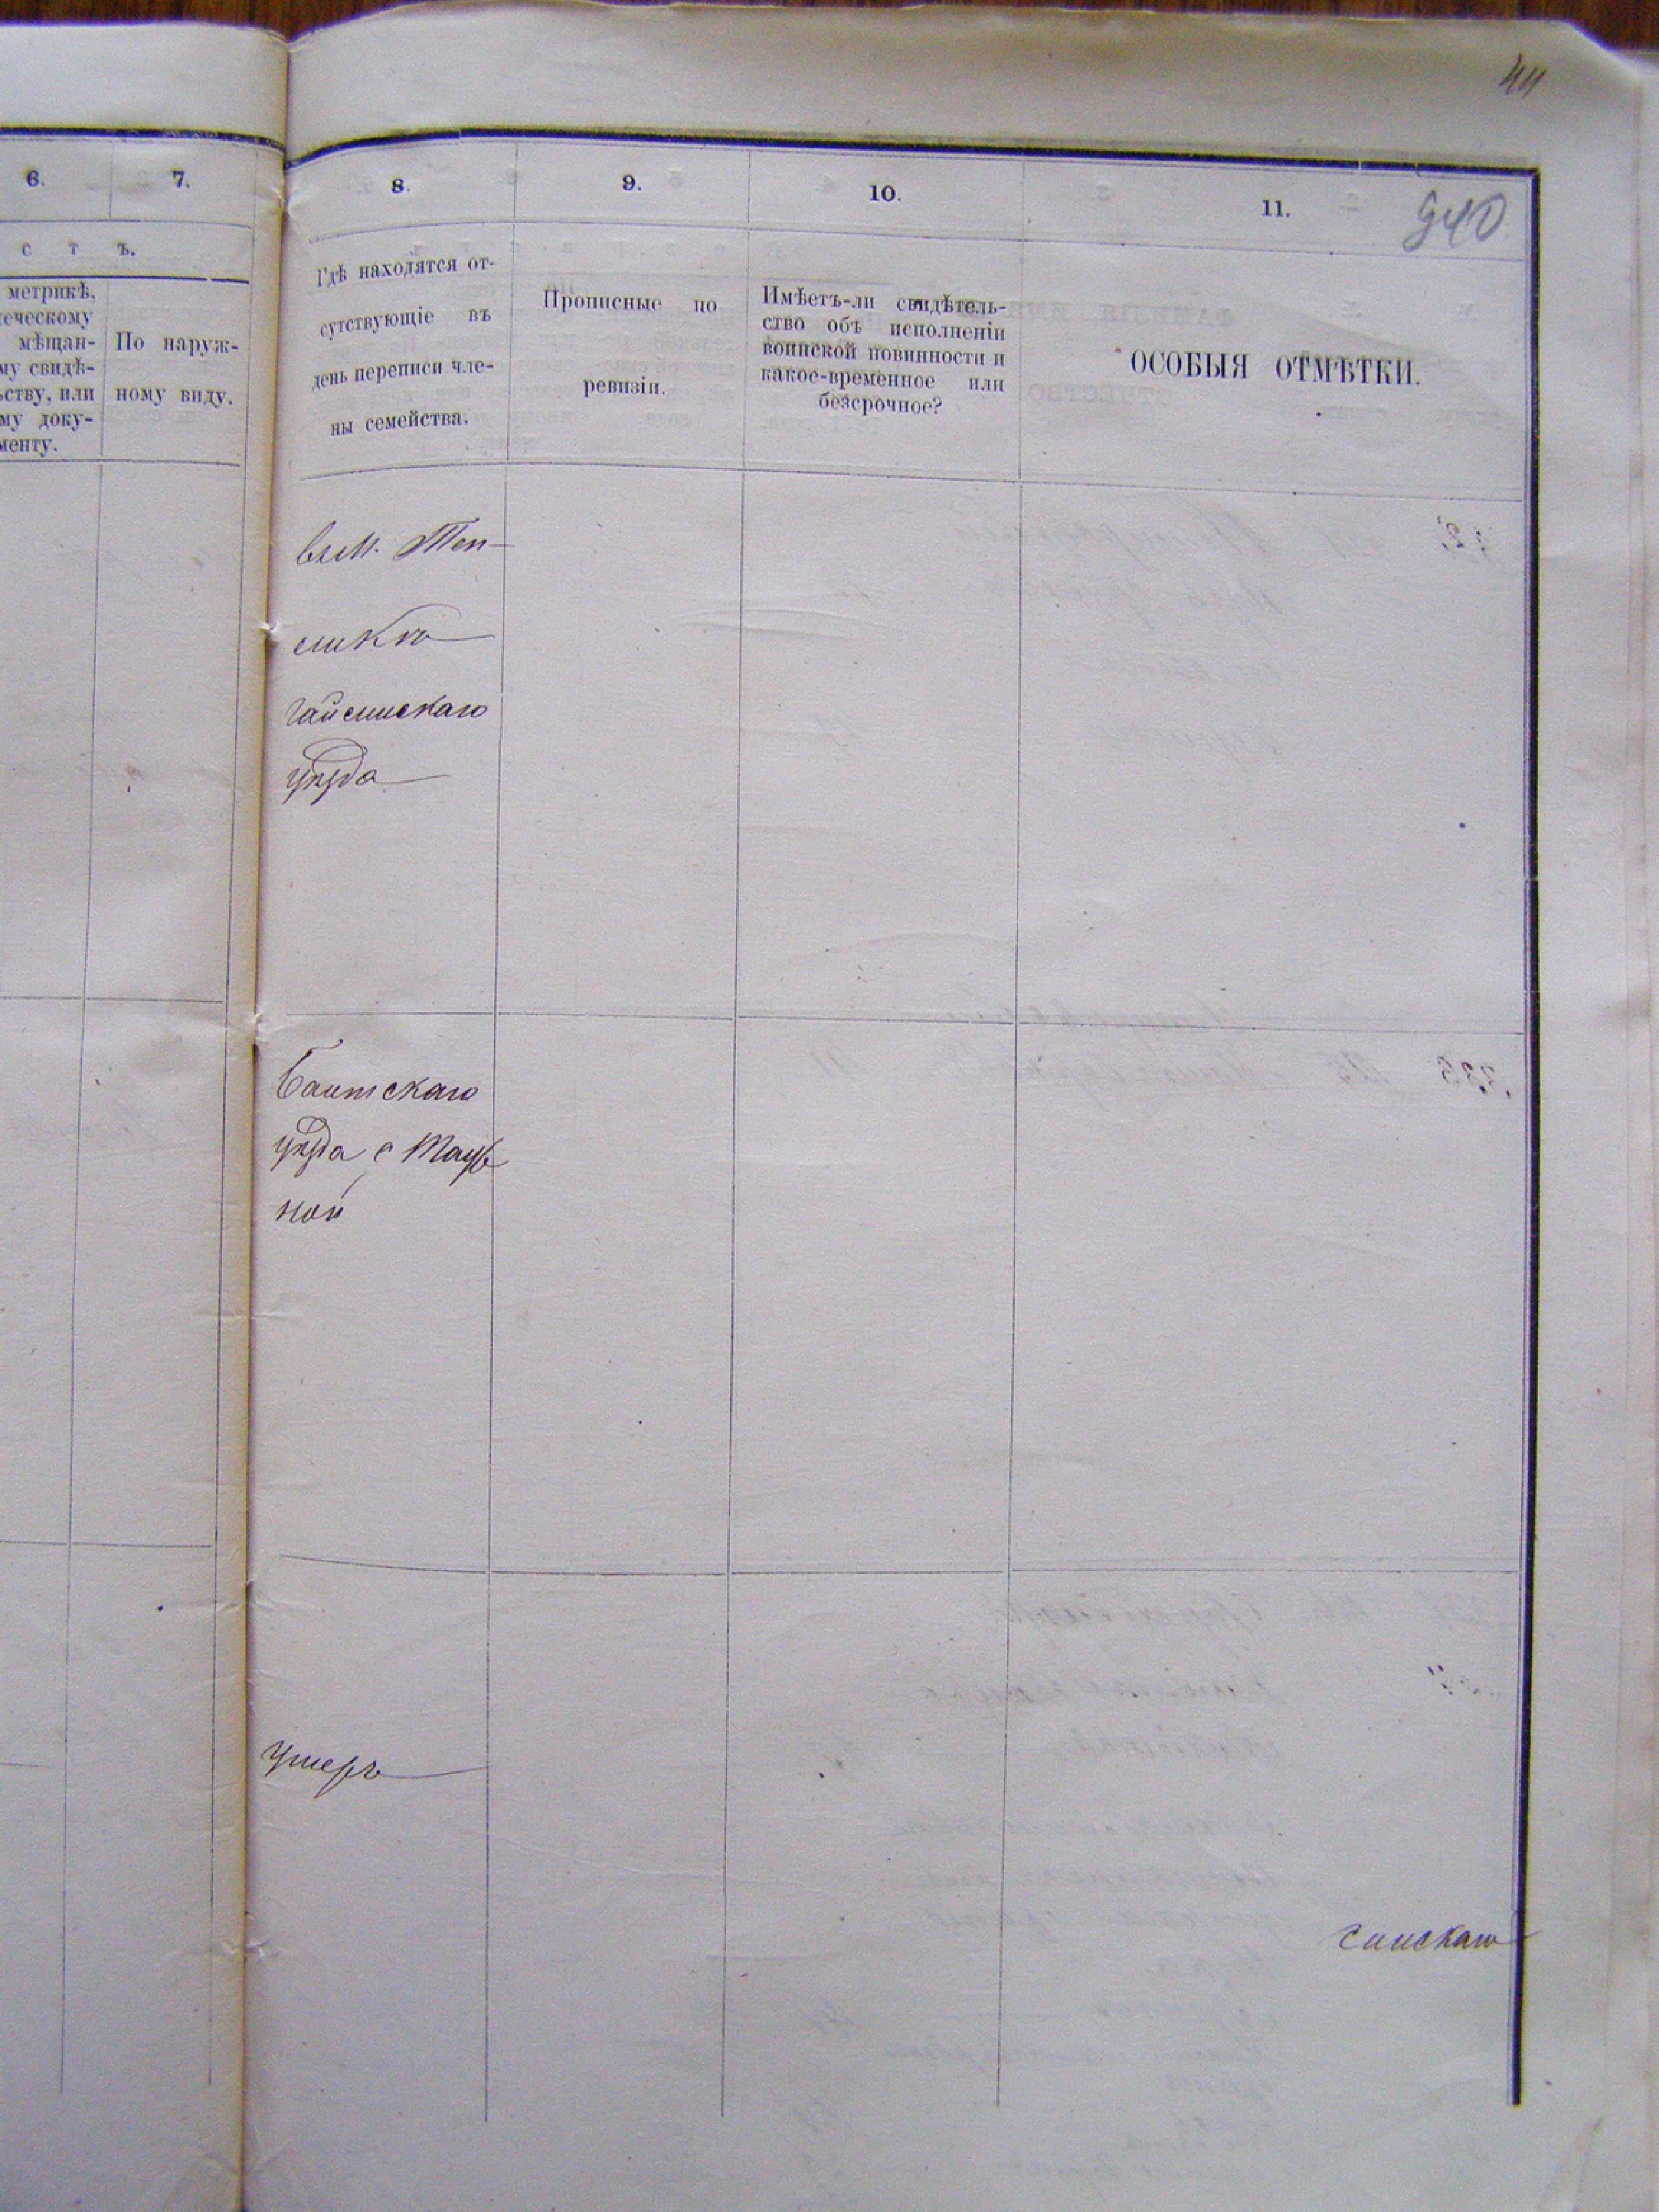 44
6.
7.
8.
9.
10.
11.
940
с т ъ.
метрикѣ,
еческому
мѣщан-
му свидѣ-
ьству, или
му доку-
менту.
По наруж-
ному виду.
Гдѣ находятся от-
сутствующіе въ
день переписи чле-
ны семейства.
Прописные по
ревизіи.
Имѣетъ-ли свидѣтель-
ство объ исполненіи
воинской повинности и
какое-временное или
безсрочное?
ОСОБЫЯ ОТМѢТКИ.
въ м. Теп-
ликѣ
Гайсинскаго
уѣзда
Балтскаго
уѣзда с
ной
Умеръ